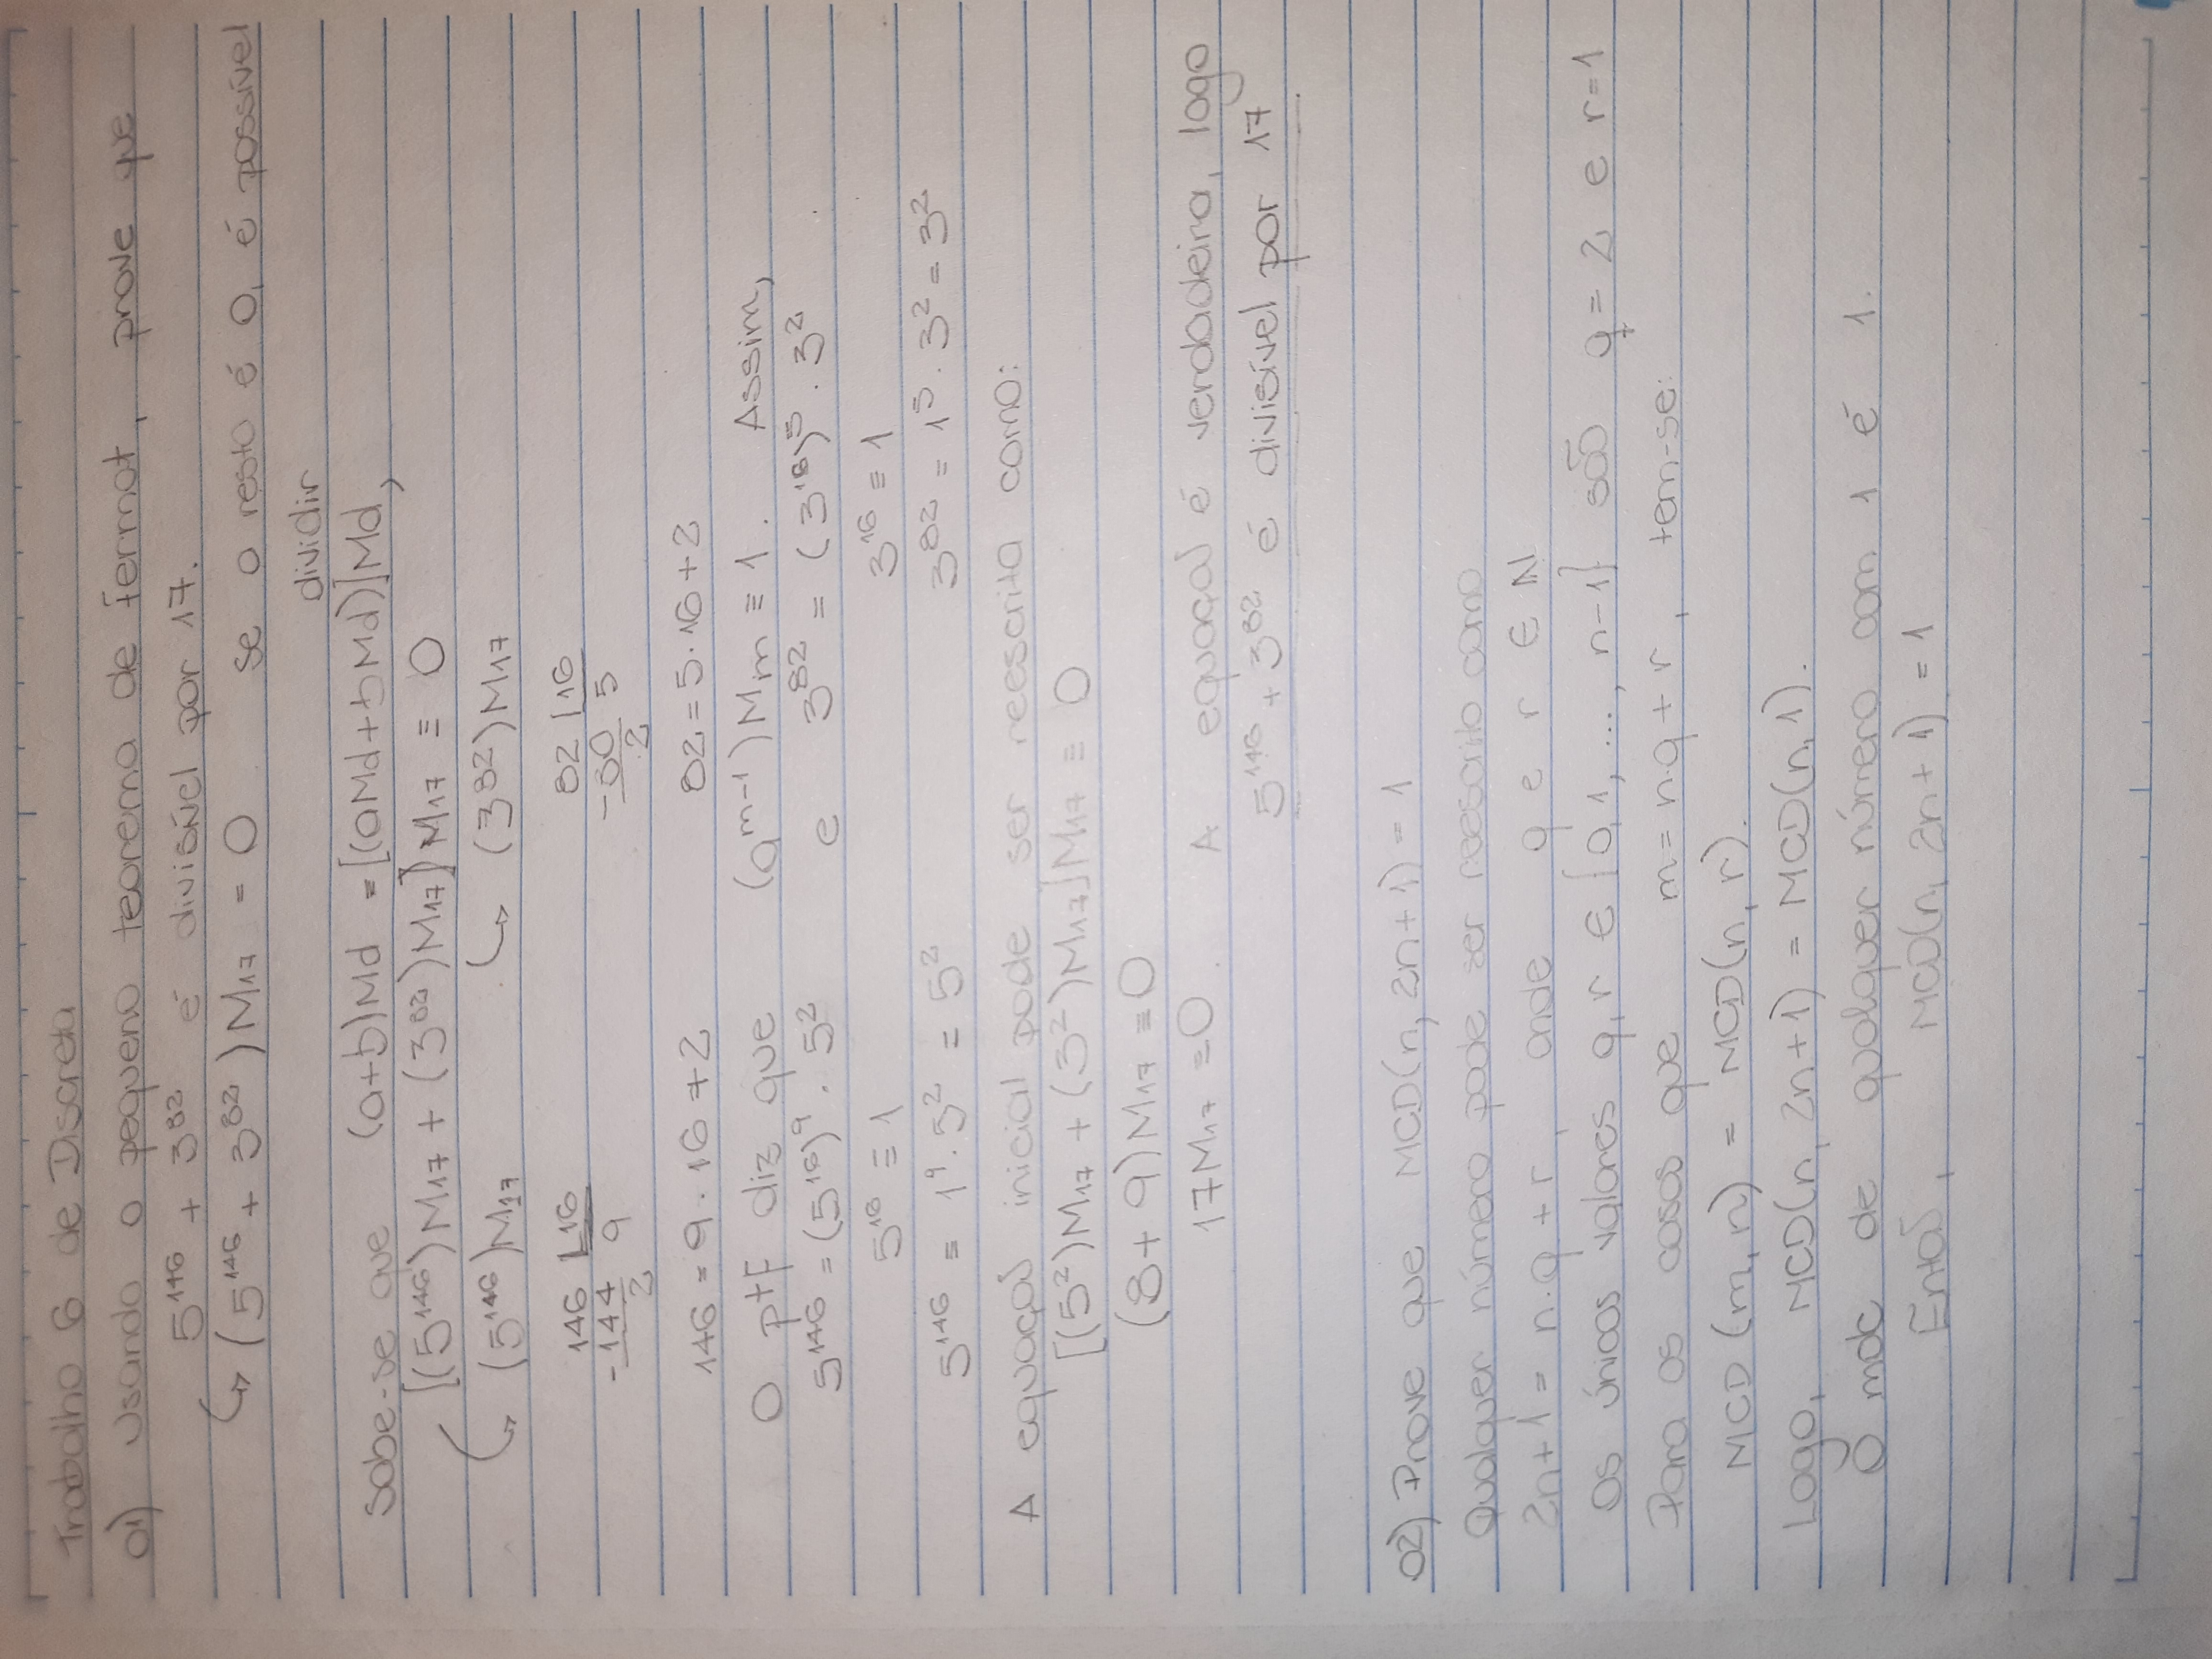 Trabalho 6 de Discreta
01) Usando o pequeno teorema de Fermat, prove que
5¹⁴⁶ + 3⁸² é divisível por 17.
↪ (5¹⁴⁶ + 3⁸²)M₁₇ = 0 se o resto é 0, é possível
dividir
Sabe-se que (a+b)Md = [(aMd+bMd)]Md,
[(5¹⁴⁶)M₁₇ + (3⁸²)M₁₇]M₁₇ ≡ 0
↪ (5¹⁴⁶)M₁₇ ↪ (3⁸²)M₁₇
146 |16 82 |16
-144 9 -80 5
2 2
146 = 9 · 16 + 2 82 = 5 · 16 + 2
O ptF diz que (aᵐ⁻¹)Mm ≡ 1. Assim,
5¹⁴⁶ = (5¹⁶)⁹ · 5² e 3⁸² = (3¹⁶)⁵ · 3²
5¹⁶ ≡ 1 3¹⁶ ≡ 1
5¹⁴⁶ ≡ 1⁹ · 5² = 5² 3⁸² = 1⁵ · 3² = 3²
A equação inicial pode ser reescrita como:
[(5²)M₁₇ + (3²)M₁₇]M₁₇ ≡ 0
(8+9)M₁₇ ≡ 0
17M₁₇ ≡ 0. A equação é verdadeira, logo
5¹⁴⁶ + 3⁸² é divisível por 17
02) Prove que MCD(n, 2n+1) = 1
Qualquer número pode ser reescrito como
2n+1 = n·q + r, onde q e r ∈ ℕ
Os únicos valores q, r ∈ {0, 1, ..., n-1} são q = 2 e r=1
Para os casos que m = n·q + r, tem-se:
MCD (m, n) = MCD(n, r).
Logo, MCD(n, 2n+1) = MCD(n, 1).
O mdc de qualquer número com 1 é 1.
Então, MCD(n, 2n+1) = 1